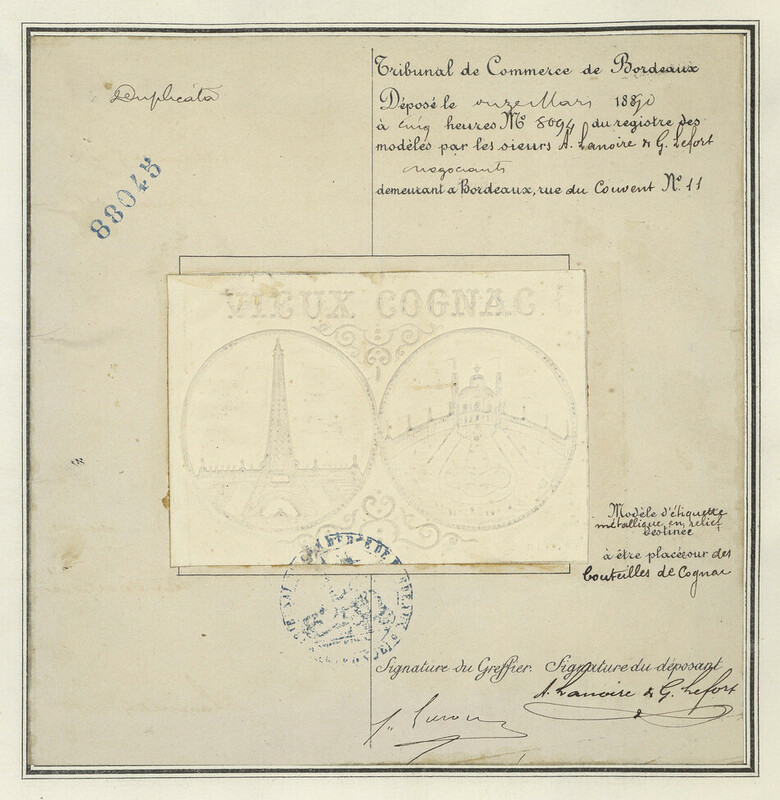 Duplicata
88045
Tribunal de Commerce de Bordeaux
Déposé le onze Mars 1890
à cinq heures N° 8094 du registre des
modèles par les sieurs A. Lanoire & G. Lefort
négociants
demeurant à Bordeaux, rue du Couvent N° 11
VIEUX COGNAC
Modèle d'étiquette
métallique en relief
destinée
à être placée sur des
bouteilles de Cognac
Signature du Greffier. Signature du déposant
A. Lanoire & G. Lefort